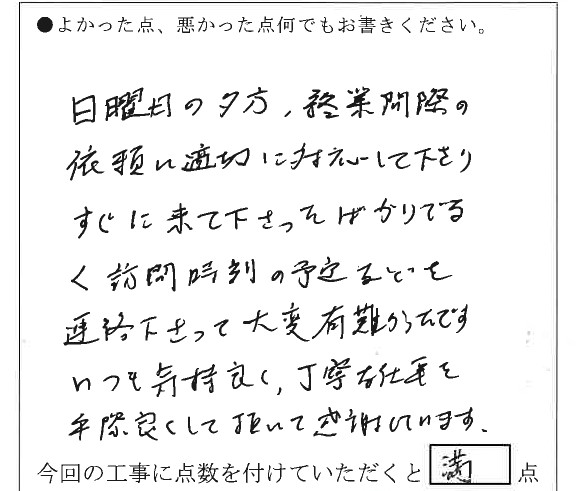 ●よかった点、悪かった点何でもお書きください。
日曜日の夕方，終業間際の
依頼に適切に対応して下さり
すぐに来て下さったばかりでな
く訪問時刻の予定なども
連絡下さって大変有難かったです
いつも気持良く，丁寧な仕事を
手際良くして頂いて感謝しています．
今回の工事に点数を付けていただくと 満 点